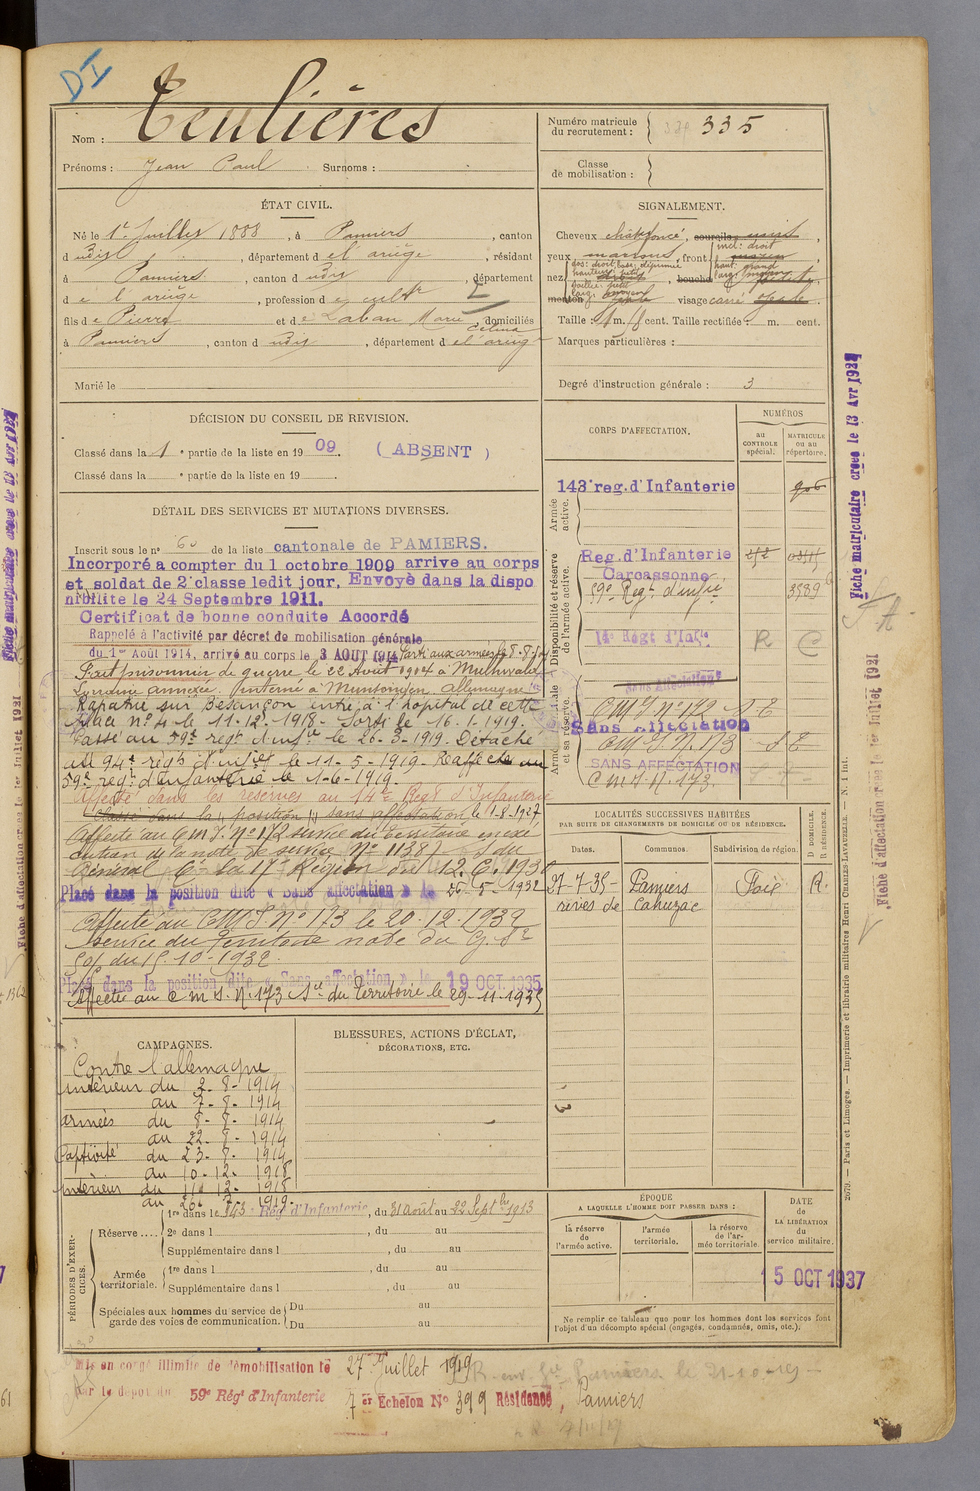 DI
Nom : Teulières
Prénoms : Jean Paul Surnoms :
Numéro matricule du recrutement : 335
Classe de mobilisation :
ÉTAT CIVIL.
Né le 1er Juillet 1888, à Pamiers, canton
d udit, département de l'ariège, résidant
à Pamiers, canton d udit, département
de l'ariège, profession de cultr
fils de Pierre et de Laban Marie Célina, domiciliés
à Pamiers, canton d udit, département de l'ariège
Marié le
SIGNALEMENT.
Cheveux chât foncé, sourcils
yeux marrons, front incl: droit
haut: grand
nez dos: droit base: déprimée
hauteur: petite
saillie: petit
bouche
menton visage carré ovale
Taille : 1 m. cent. Taille rectifiée : m. cent.
Marques particulières :
Degré d'instruction générale : 3
DÉCISION DU CONSEIL DE REVISION.
Classé dans la 1e partie de la liste en 1909. (ABSENT)
Classé dans la e partie de la liste en 19
DÉTAIL DES SERVICES ET MUTATIONS DIVERSES.
Inscrit sous le no 60 de la liste cantonale de PAMIERS.
Incorporé a compter du 1 octobre 1909 arrive au corps
et soldat de 2e classe ledit jour. Envoyé dans la dispo
nibilite le 24 Septembre 1911.
Certificat de bonne conduite Accordé
Rappelé à l'activité par décret de mobilisation générale
du 1er Août 1914, arrivé au corps le 3 AOUT 1914 Parti aux armées le 8-8-14
Fait prisonnier de guerre le 22 Août 1914 à Mulhwald
Lorraine annexée. interné à Allemagne
Rapatrié sur Besançon entré à l'hôpital de cette
place no 4 le 11-12-1918. Sorti le 16-1-1919.
Passé au 59e régt d'infie le 26-3-1919. Détaché
au 94e régt d'infie le 11-5-1919. Réaffecté au
59e régt d'infanterie le 1-6-1919.
Affecté dans les réserves au 14e Régt d'Infanterie
Classé dans la position sans affectation le 1-8-1927
Affecté au C.M.I. No 172 service du territoire en exé
cution de la note de service No 11387 du
Général Ct la 17e Région du 12.6.193
Placé dans la position dite « Sans affectation » le 20-5-1932
Affecté au CMI No 173 le 20-12-1932
service du territoire note du G. Ct
du 15-10-1932.
Placé dans la position dite « Sans affectation » le 19 OCT 1935
Affecté au C.M.I. N.173 Sce du Territoire le 29-11-1935
CORPS D'AFFECTATION.
NUMÉROS
au CONTROLE spécial.
MATRICULE ou au répertoire.
Armée active.
143e reg. d'Infanterie 906
Disponibilité et réserve de l'armée active.
Reg. d'Infanterie
Carcassonne
59e Régt d'infie 3589
14e Régt d'Infie R C
Armée territoriale et sa réserve.
Sans Affectation
C M I No 172 S.T
Sans Affectation
C M I N.173 S T
SANS AFFECTATION
C M I N.173. S T
LOCALITÉS SUCCESSIVES HABITÉES
PAR SUITE DE CHANGEMENTS DE DOMICILE OU DE RÉSIDENCE.
Dates. Communes. Subdivision de région. D DOMICILE. R RÉSIDENCE.
27-7-35- Pamiers Foix- R.
rives de Cahuzac
CAMPAGNES.
Contre l'allemagne
intérieur du 2-8-1914
au 7-8-1914
armées du 8-8-1914
au 22-8-1914
Captivité du 23-8-1914
au 10-12-1918
intérieur du 11-12-1918
au 26-7-1919.
BLESSURES, ACTIONS D'ÉCLAT,
DÉCORATIONS, ETC.
PÉRIODES D'EXERCICES.
Réserve.... 1re dans le 143e Rég d'Infanterie, du 31 août au 22 Septbre 1913
2e dans l , du au
Supplémentaire dans l , du au
Armée territoriale. 1re dans l , du au
Supplémentaire dans l , du au
Spéciales aux hommes du service de garde des voies de communication. Du au
Du au
ÉPOQUE
A LAQUELLE L'HOMME DOIT PASSER DANS :
la réserve de l'armée active.
l'armée territoriale.
la réserve de l'armée territoriale.
DATE de la LIBÉRATION du service militaire.
15 OCT 1937
Ne remplir ce tableau que pour les hommes dont les services font
l'objet d'un décompte spécial (engagés, condamnés, omis, etc.).
Mis en congé illimité de démobilisation le 27 Juillet 1919
par le dépôt du 59e Rég d'Infanterie 7er Echelon No 399 Résidence, Pamiers
Pamiers le 21-10-19
Fiche matriculaire créée le 13 Avr 1921
Fiche d'affectation créée le 1er Juillet 1921
2679. — Paris et Limoges. — Imprimerie et librairie militaires Henri CHARLES-LAVAUZELLE. — N. 1 int.